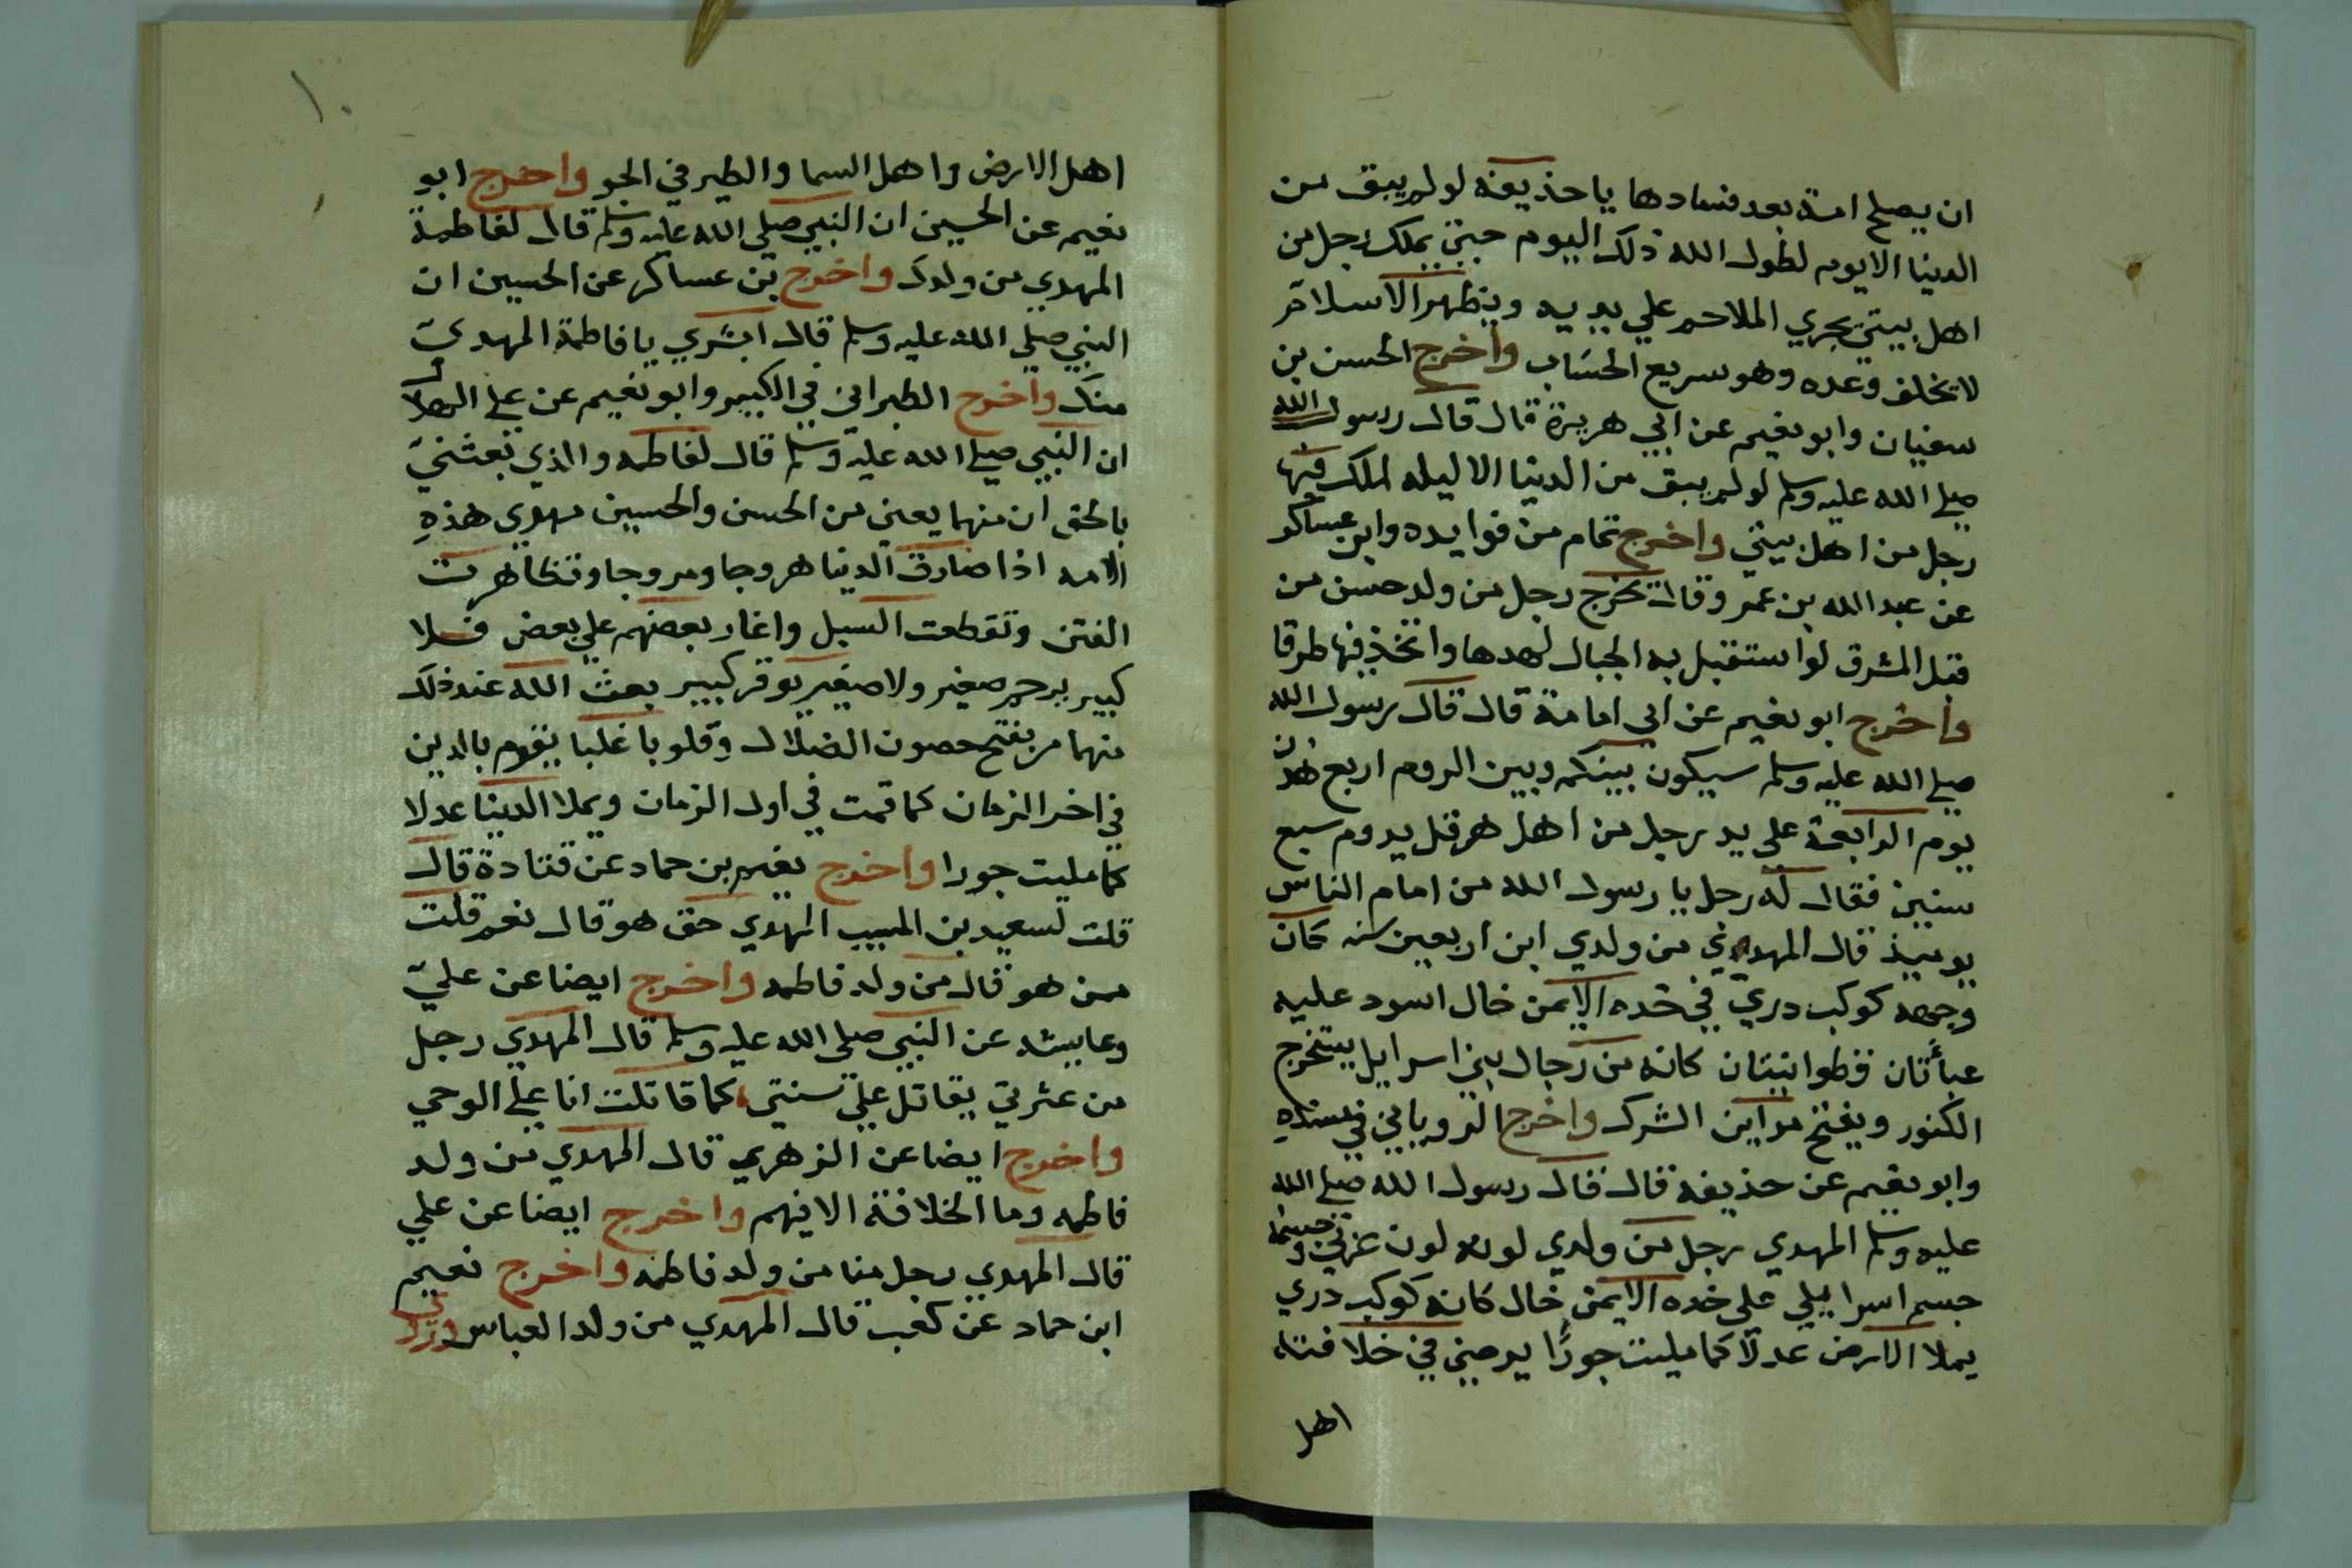 ان يصلح امة بعد فسادها يا حذيفه لو لم يبق من
الدنيا الا يوم لطول الله ذلك اليوم حتي يملك رجل من
اهل بيتي يجري الملاحم علي يديه ويظهر الاسلام
لا يخلف وعده وهو سريع الحساب واخرج الحسن بن
سفيان وابو نعيم عن ابي هريرة قال قال رسول الله
صلي الله عليه وسلم لو لم يبق من الدنيا الا ليله لملك فيها
رجل من اهل بيتي واخرج تمام من فوايده وابن عساكر
عن عبد الله بن عمر وقال يخرج رجل من ولد حسن من
قبل المشرق لو استقبل به الجبال لهدها واتخذ فيها طرقا
واخرج ابو نعيم عن ابي امامة قال قال رسول الله
صلي الله عليه وسلم سيكون بينكم وبين الروم اربع هدن
يوم الرابعة على يد رجل من اهل هرقل يدوم سبع
سنين فقال له رجل يا رسول الله من امام الناس
يوميذ قال المهدي من ولدي ابن اربعين سنه كان
وجهه كوكب دري في خده الايمن خال اسود عليه
عباءتان قطوانيتان كانه من رجال بني اسرايل يستخرج
الكنوز ويفتح مداين الشرك واخرج الروياني في مسنده
وابو نعيم عن حذيفه قال قال رسول الله صلي الله
عليه وسلم المهدي رجل من ولدي لونه لون عربي وجسمه
جسم اسراييلي على خده الايمن خال كانه كوكب دري
يملا الارض عدلا كما مليت جورا يرضي في خلافته
اهل
١٠
اهل الارض واهل السما والطير في الجو واخرج ابو
نعيم عن الحسين ان النبي صلي الله عليه وسلم قال لفاطمة
المهدي من ولدك واخرج بن عساكر عن الحسين ان
النبي صلي الله عليه وسلم قال ابشري يا فاطمة المهدي
منك واخرج الطبراني في الكبير وابو نعيم عن علي الهلالي
ان النبي صلي الله عليه وسلم قال لفاطمه والذي بعثني
بالحق ان منهما يعني من الحسن والحسين مهدي هذه
الامه اذا صارت الدنيا هروجا ومروجا وتظاهرت
الفتن وتقطعت السبل واغار بعضهم علي بعض فلا
كبير يرحم صغير ولا صغير يوقر كبير بعث الله عند ذلك
منهما من يفتح حصون الضلال وقلوبا غلبا يقوم بالدين
في اخر الزمان كما قمت في اول الزمان ويملا الدنيا عدلا
كما مليت جورا واخرج نعيم بن حماد عن قتادة قال
قلت لسعيد بن المسيب المهدي حق هو قال نعم قلت
ممن هو قال من ولد فاطمه واخرج ايضا عن علي
وعايشه عن النبي صلي الله عليه وسلم قال المهدي رجل
من عترتي يقاتل علي سنتي كما قاتلت انا علي الوحي
واخرج ايضا عن الزهري قال المهدي من ولد
فاطمه وما الخلافة الا فيهم واخرج ايضا عن علي
قال المهدي رجل منا من ولد فاطمه واخرج نعيم
ابن حماد عن كعب قال المهدي من ولد العباس